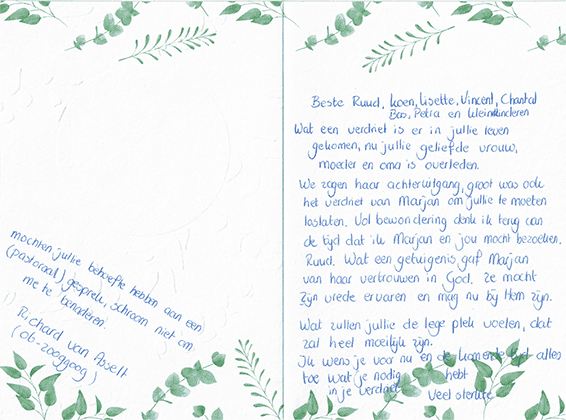 Beste Ruud, Koen, Lisette, Vincent, Chantal
Bas, Petra en kleinkinderen
Wat een verdriet is er in jullie leven
gekomen, nu jullie geliefde vrouw,
moeder en oma is overleden.
We zagen haar achteruitgang, groot was ook
het verdriet van Marjan om jullie te moeten
loslaten. Vol bewondering denk ik terug aan
de tijd dat ik Marjan en jou mocht bezoeken.
Ruud. Wat een getuigenis gaf Marjan
van haar vertrouwen in God. Ze mocht
Zijn vrede ervaren en mag nu bij Hem zijn.
Wat zullen jullie de lege plek voelen, dat
zal heel moeilijk zijn.
Ik wens je voor nu en de komende tijd alles
toe wat je nodig hebt
in je verdriet Veel sterkte
mochten jullie behoefte hebben aan een
(pastoraal) gesprek, schroom niet om
me te benaderen.
Richard van Asselt